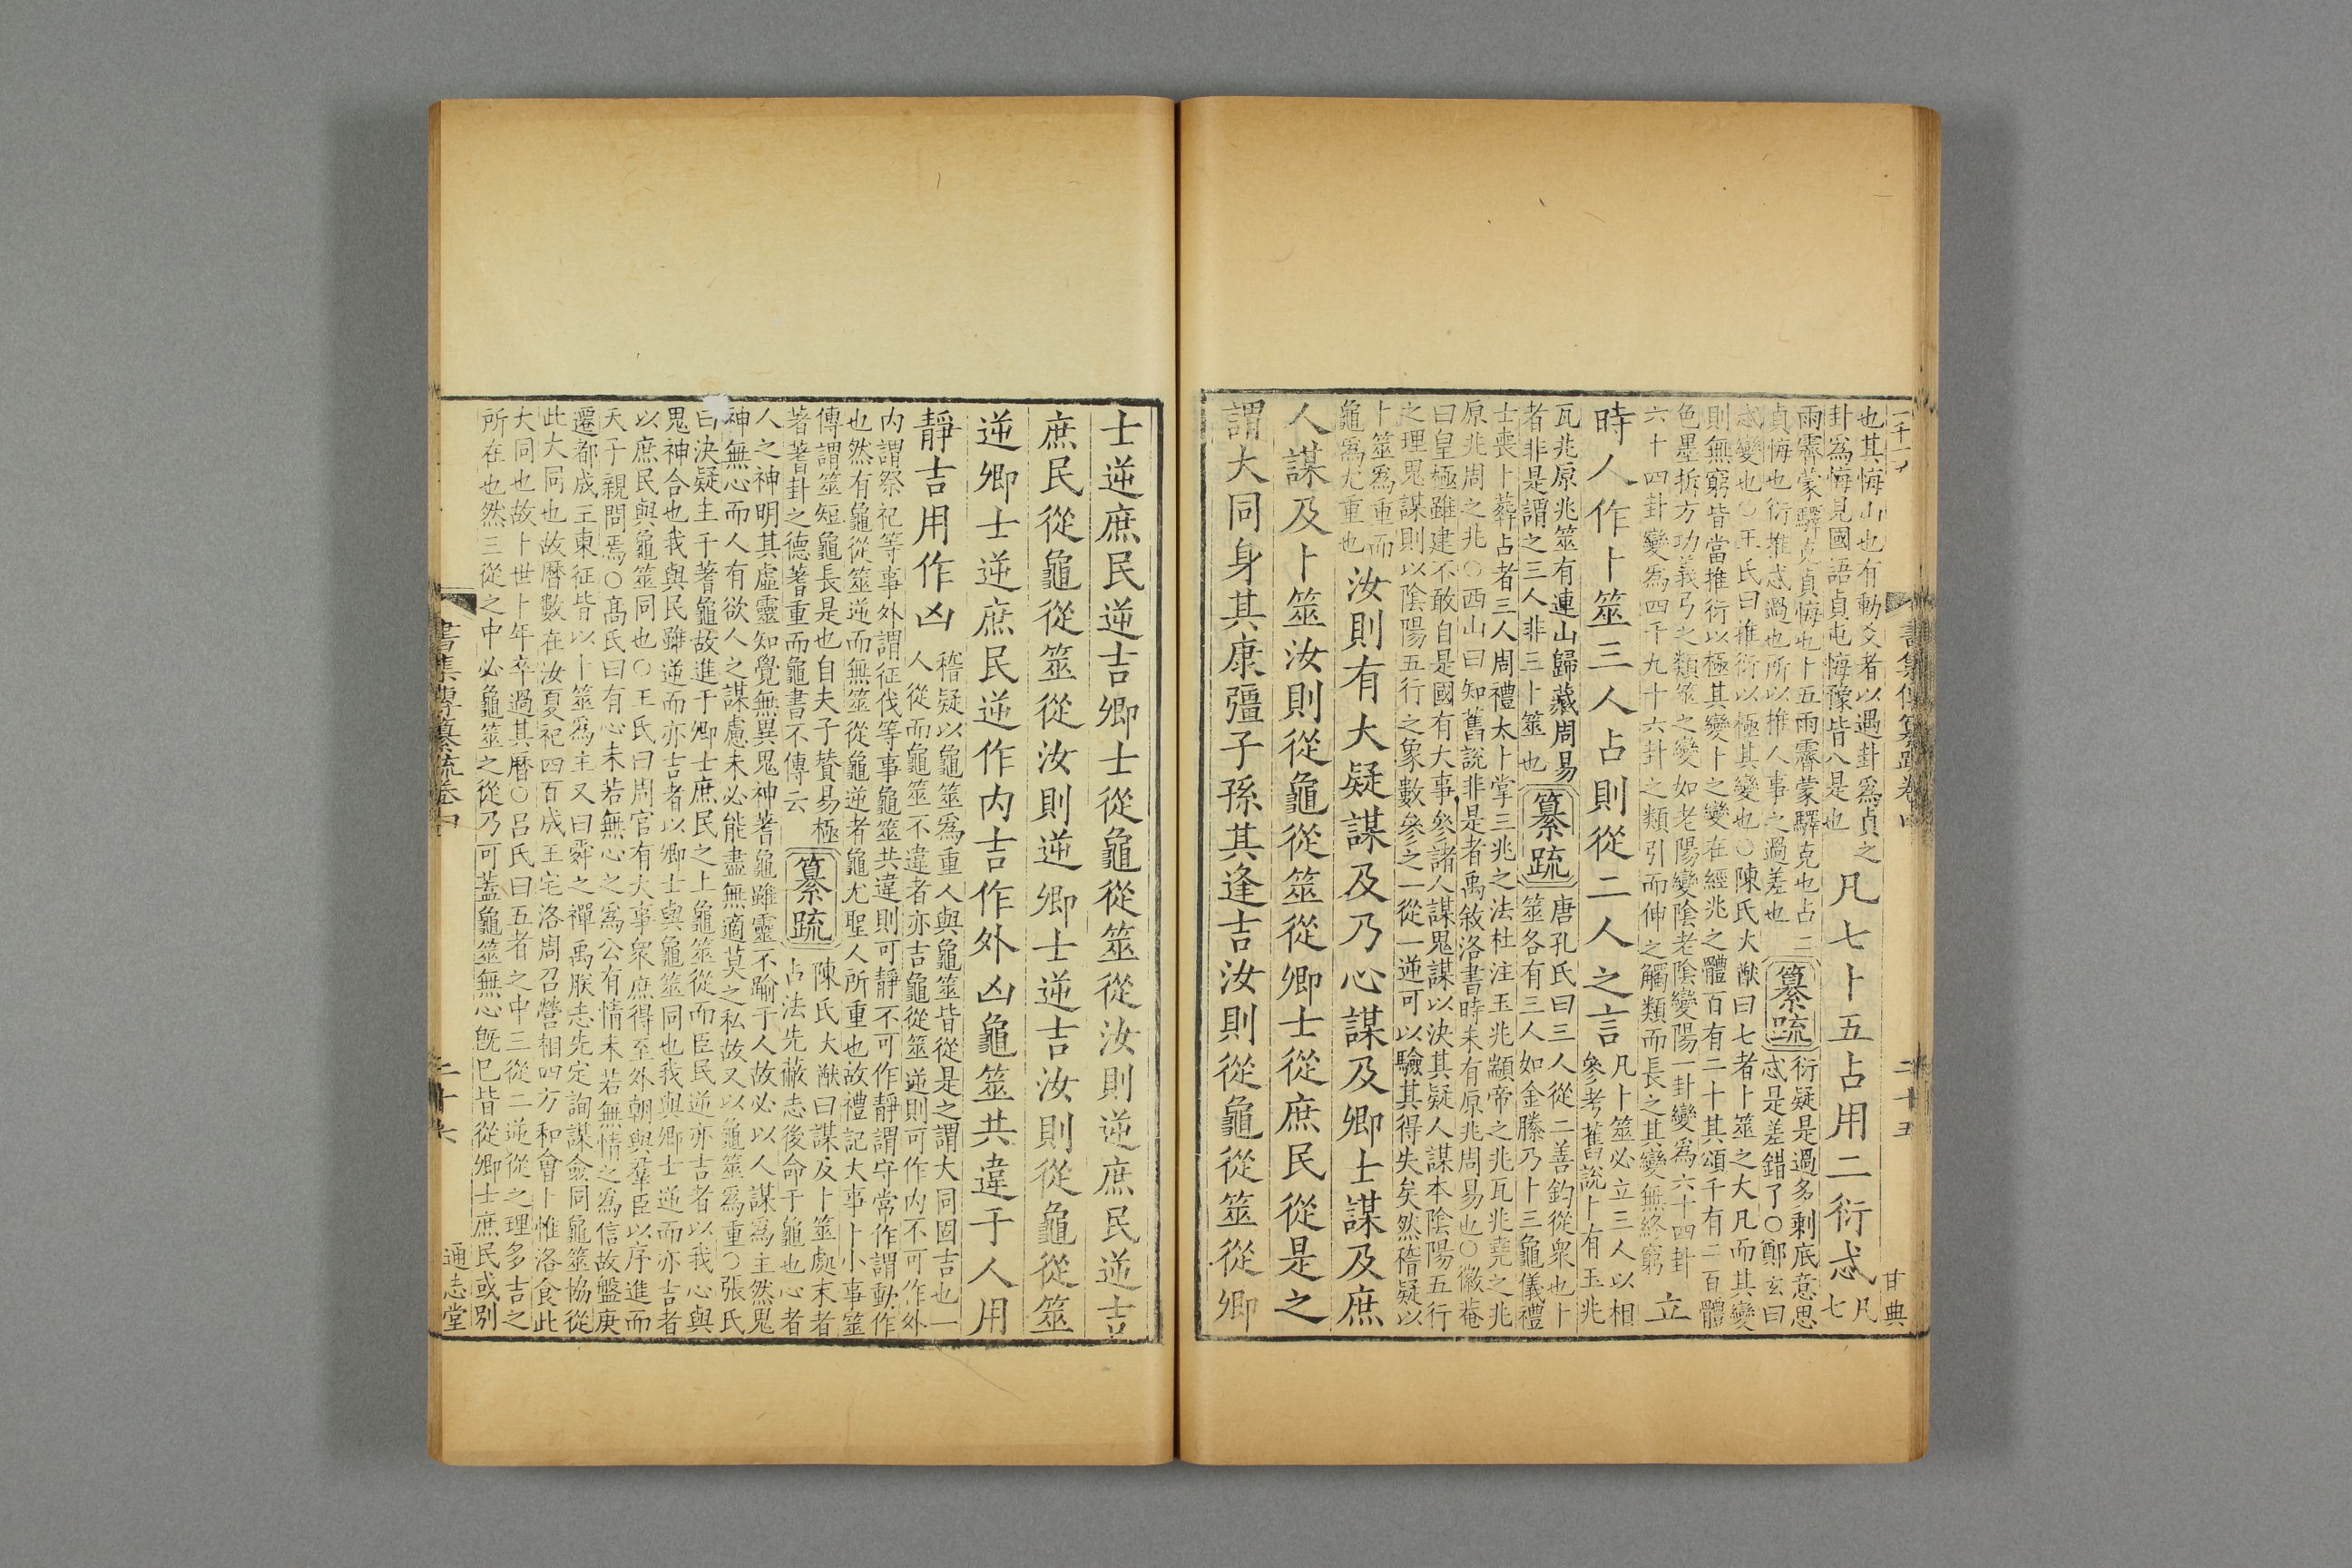 書集傳纂疏卷四
二十五
甘典
也其悔山也有動爻者以遇卦爲貞之
卦爲悔見國語貞屯悔豫皆八是也
凡七卜五占用二衍忒
凡
七
雨霽蒙驛克貞悔也卜五雨霽蒙驛克也占二
貞悔也衍推忒過也所以推人事之過差也
纂疏
衍疑是過多剩底意思
忒是差錯了○鄭玄曰
忒變也○王氏曰推衍以極其變也○陳氏大猷曰七者卜筮之大凡而其變
則無窮皆當推衍以極其變卜之變在經兆之體百有二十其頌千有二百體
色墨拆方功義弓之類筮之變如老陽變陰老陰變陽一卦變爲六十四卦
六十四卦變爲四千九十六卦之類引而伸之觸類而長之其變無終窮
立
時人作卜筮三人占則從二人之言
凡卜筮必立三人以相
參考舊説卜有玉兆
瓦兆原兆筮有連山歸藏周易
者非是謂之三人非三卜筮也
纂疏
唐孔氏曰三人從二善鈞從衆也卜
筮各有三人如金縢乃卜三龜儀禮
士喪卜葬占者三人周禮太卜掌三兆之法杜注玉兆顓帝之兆瓦兆堯之兆
原兆周之兆○西山曰知舊說非是者禹敘洛書時未有原兆周易也○徽菴
曰皇極雖建不敢自是國有大事參諸人謀鬼謀以決其疑人謀本陰陽五行
之理鬼謀則以陰陽五行之象數參之一從一逆可以驗其得失矣然稽疑以
卜筮爲重而
龜爲尤重也
汝則有大疑謀及乃心謀及卿士謀及庶
人謀及卜筮汝則從龜從筮從卿士從庶民從是之
謂大同身其康彊子孫其逢吉汝則從龜從筮從卿
士逆庶民逆吉卿士從龜從筮從汝則逆庶民逆吉
庶民從龜從筮從汝則逆卿士逆吉汝則從龜從筮
逆卿士逆庶民逆作内吉作外凶龜筮共違于人用
靜吉用作凶
稽疑以龜筮爲重人與龜筮皆從是之謂大同固吉也一
人從而龜筮不違者亦吉龜從筮逆則可作内不可作外
内謂祭祀等事外謂征伐等事龜筮共違則可靜不可作靜謂守常作謂動作
也然有龜從筮逆而無筮從龜逆者龜尤聖人所重也故禮記大事卜小事筮
傳謂筮短龜長是也自夫子贊易極
著蓍卦之德蓍重而龜書不傳云
纂疏
陳氏大猷曰謀及卜筮處末者
占法先蔽志後命于龜也心者
人之神明其虛靈知覺無異鬼神蓍龜雖靈不踰于人故必以人謀爲主然鬼
神無心而人有欲人之謀慮未必能盡無適莫之私故又以龜筮爲重○張氏
曰決疑主于蓍龜故進于卿士庶民之上龜筮從而臣民逆亦吉者以我心與
鬼神合也我與民雖逆而亦吉者以卿士與龜筮同也我與卿士逆而亦吉者
以庶民與龜筮同也○王氏曰周官有大事衆庶得至外朝與羣臣以序進而
天子親問焉○高氏曰有心未若無心之爲公有情未若無情之爲信故盤庚
遷都成王東征皆以卜筮爲主又曰舜之禪禹朕志先定詢謀僉同龜筮協從
此大同也故曆數在汝夏祀四百成王宅洛周召營相四方和會卜惟洛食此
大同也故卜世卜年卒過其曆○呂氏曰五者之中三從二逆從之理多吉之
所在也然三從之中必龜筮之從乃可蓋龜筮無心既已皆從卿士庶民或別
書集傳纂疏卷四
二十六
通志堂